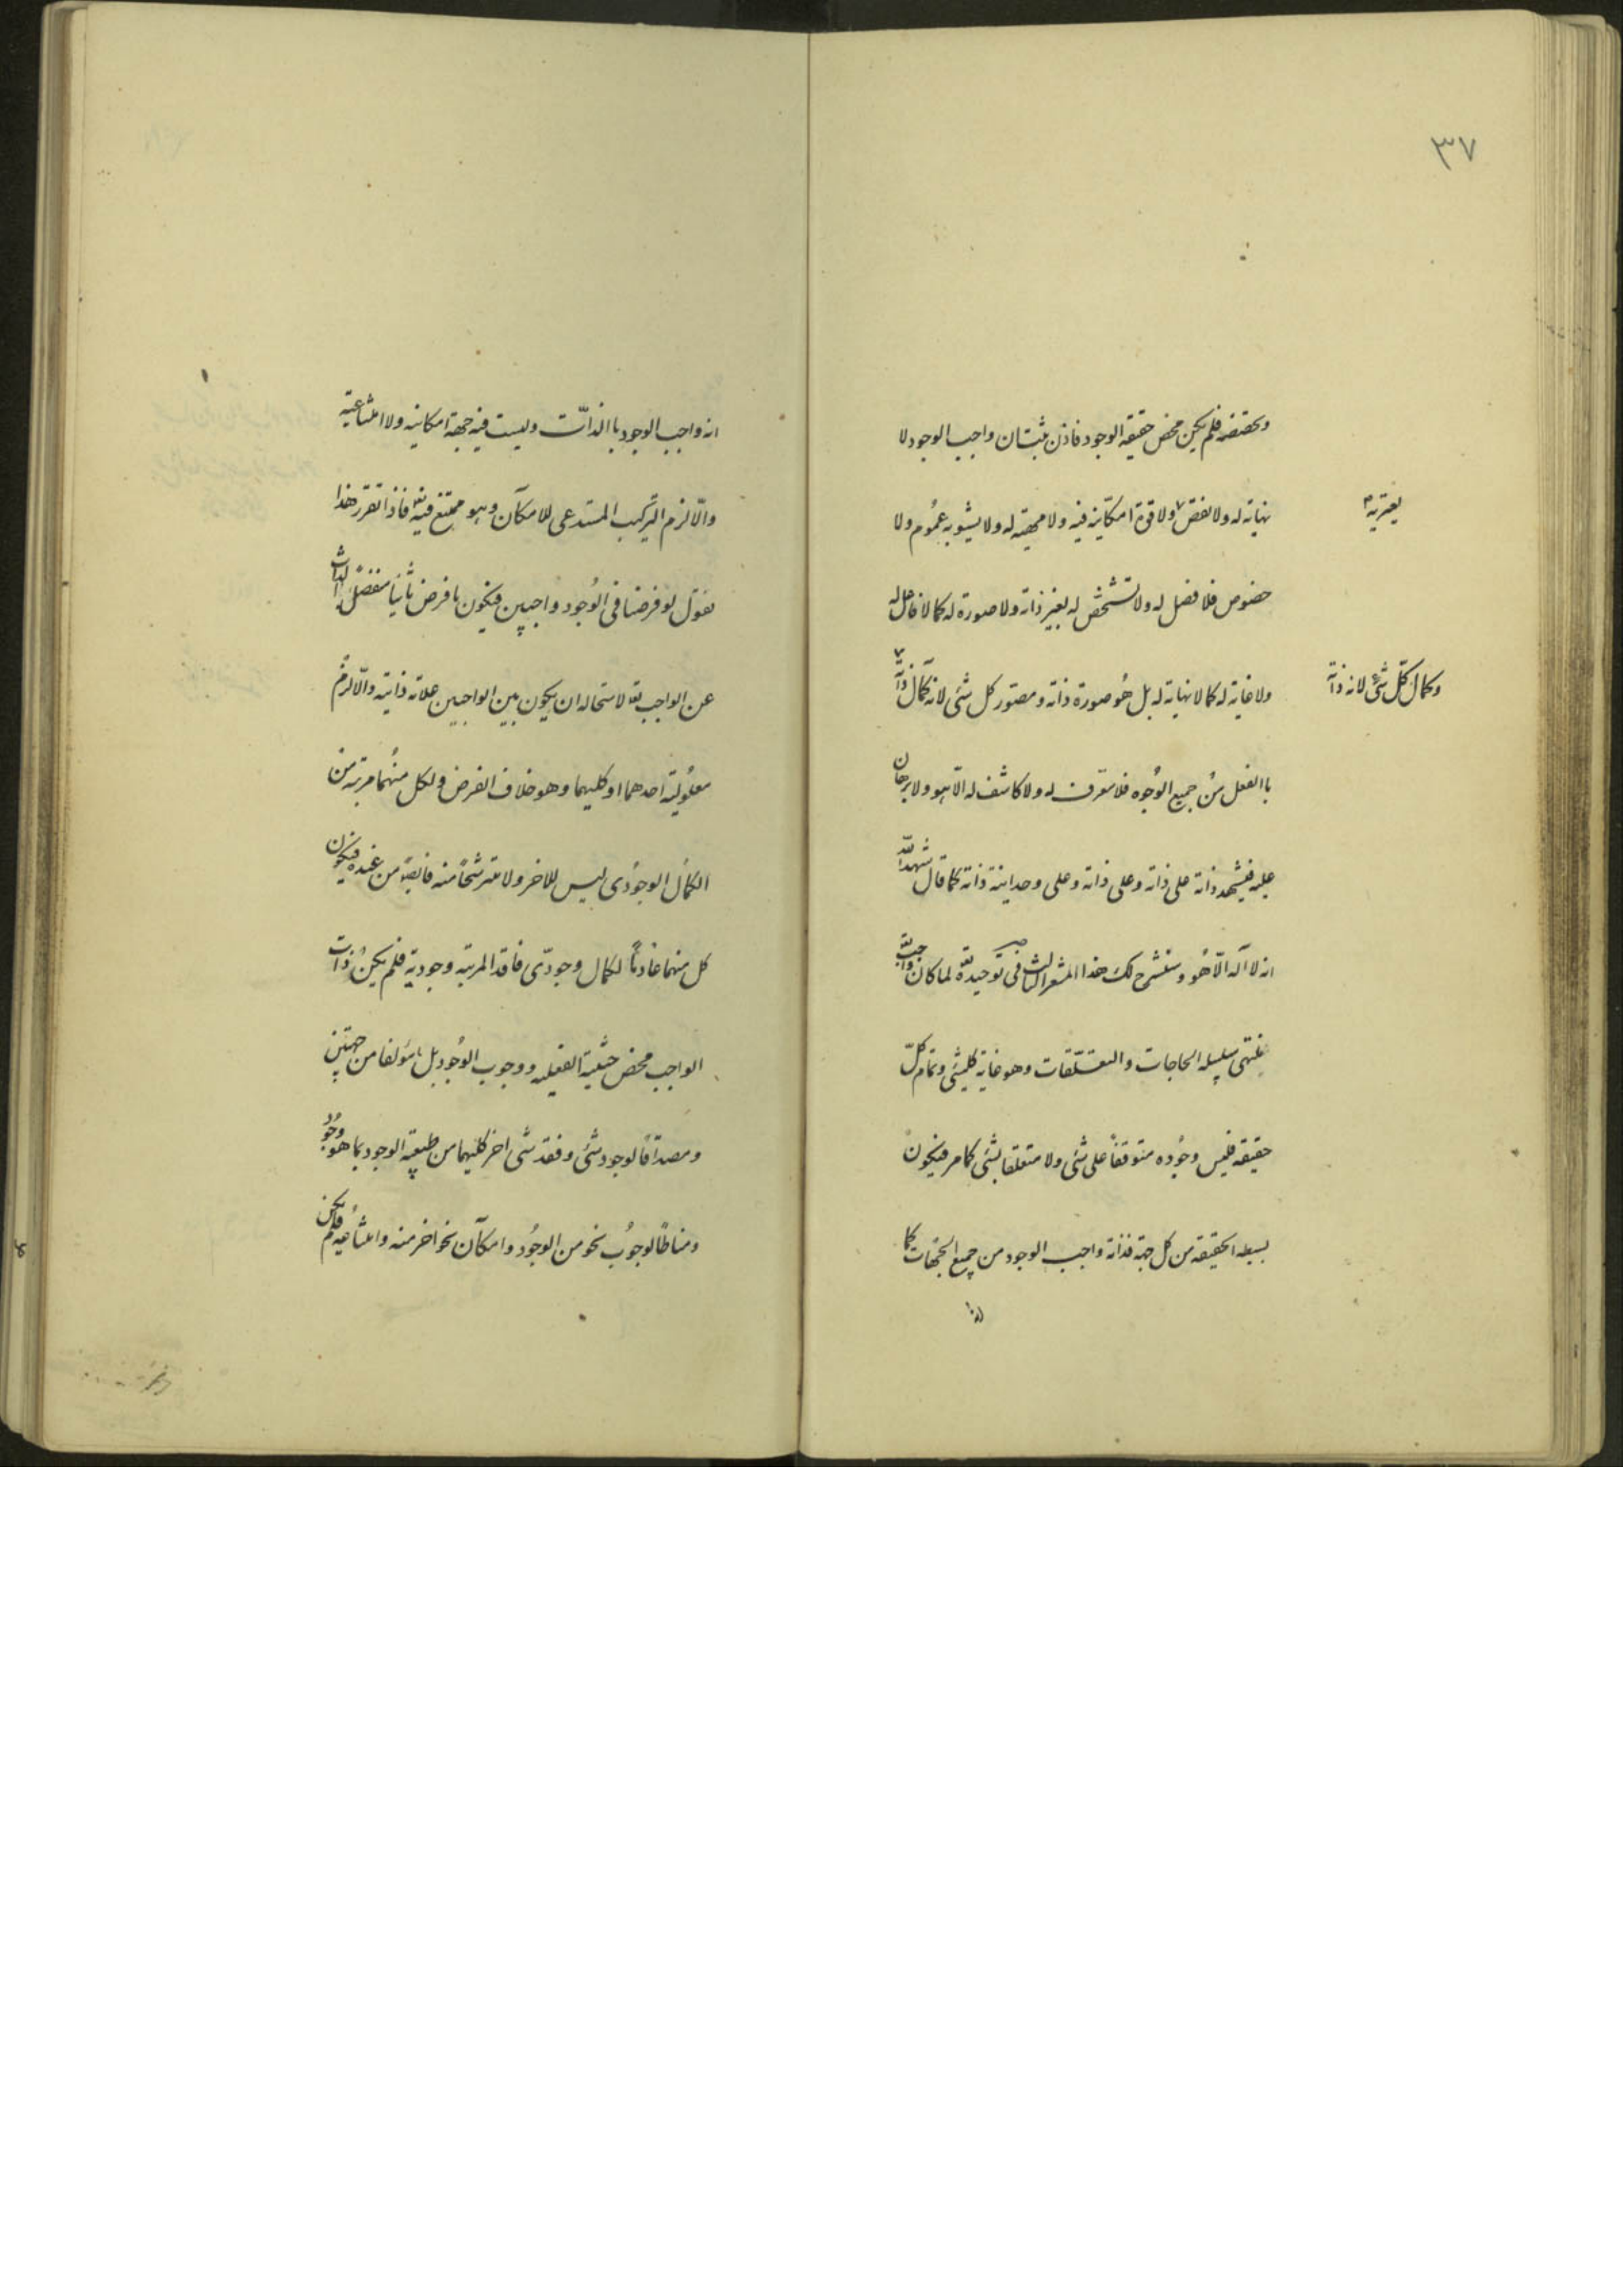 ٣٧
وتخصّصه فلم يكن محض حقيقة الوجود فاذن ثبت ان واجب الوجود لا
نهاية له ولا نقص ولا قوة امكانية فيه ولا مهية له ولا يشوبه عموم ولا
يعتريه
خصوص فلا فصل له ولا تشخّص له بغير ذاته ولا صورة له كما لا فاعل له
ولا غاية له كما لا نهاية له بل هو صورة ذاته ومصوّر كل شئ لانه كمال ذاته
وكمال كلّ شئ لانه ذاته
باالفعل من جميع الوجوه فلا معرّف له ولا كاشف له الّا هو ولا برهان
عليه فيشهد ذاته على ذاته وعلى ذاته وعلى وحدانية ذاته كما قال شهد الله
انه لا اله الّا هو وسنشرح لك هذا المشعر الثالث فى توحيده تعه لما كان واجب
منتهى سلسلة الحاجات والتعلّقات وهو غاية كلشئ وتمام كلّ
حقيقة فليس وجوده متوقفاً على شئ ولا متعلقا بشئ كما مر فيكون
بسيط الحقيقة من كل جهة فذاته واجب الوجود من جميع الجهات كما
انه
انه واجب الوجود باالذّات وليست فيه جهة امكانية ولا امتناعية
والّا لزم التركيب المستدعى للامكان وهو ممتنع فيه تعه فاذا تقرر هذا
نقول لو فرضنا فى الوجود واجبين فيكون ما فرض ثانياً منفصل الذات
عن الواجب تعه لاستحالة ان يكون بين الواجبين علاقة ذاتية والّا لزم
معلولية احدهما او كليهما وهو خلاف الفرض ولكل منهما مرتبة من
الكمال الوجودى ليس للاخر ولا مترشحاً منه فايضاً من عنده فيكون
كل منهما عادماً لكمال وجودّى فاقد المرتبة وجودية فلم يكن ذات
الواجب محض حيثية الفعليه ووجوب الوجود بل مؤلفا من جهتين
ومصداقاً لوجود شئ وفقد شئ اخر كليهما من طبيعة الوجود بما هو وجود
ومناطاً لوجوب نحو من الوجود وامكان نحو اخر منه وامتناعيه فلم يكن